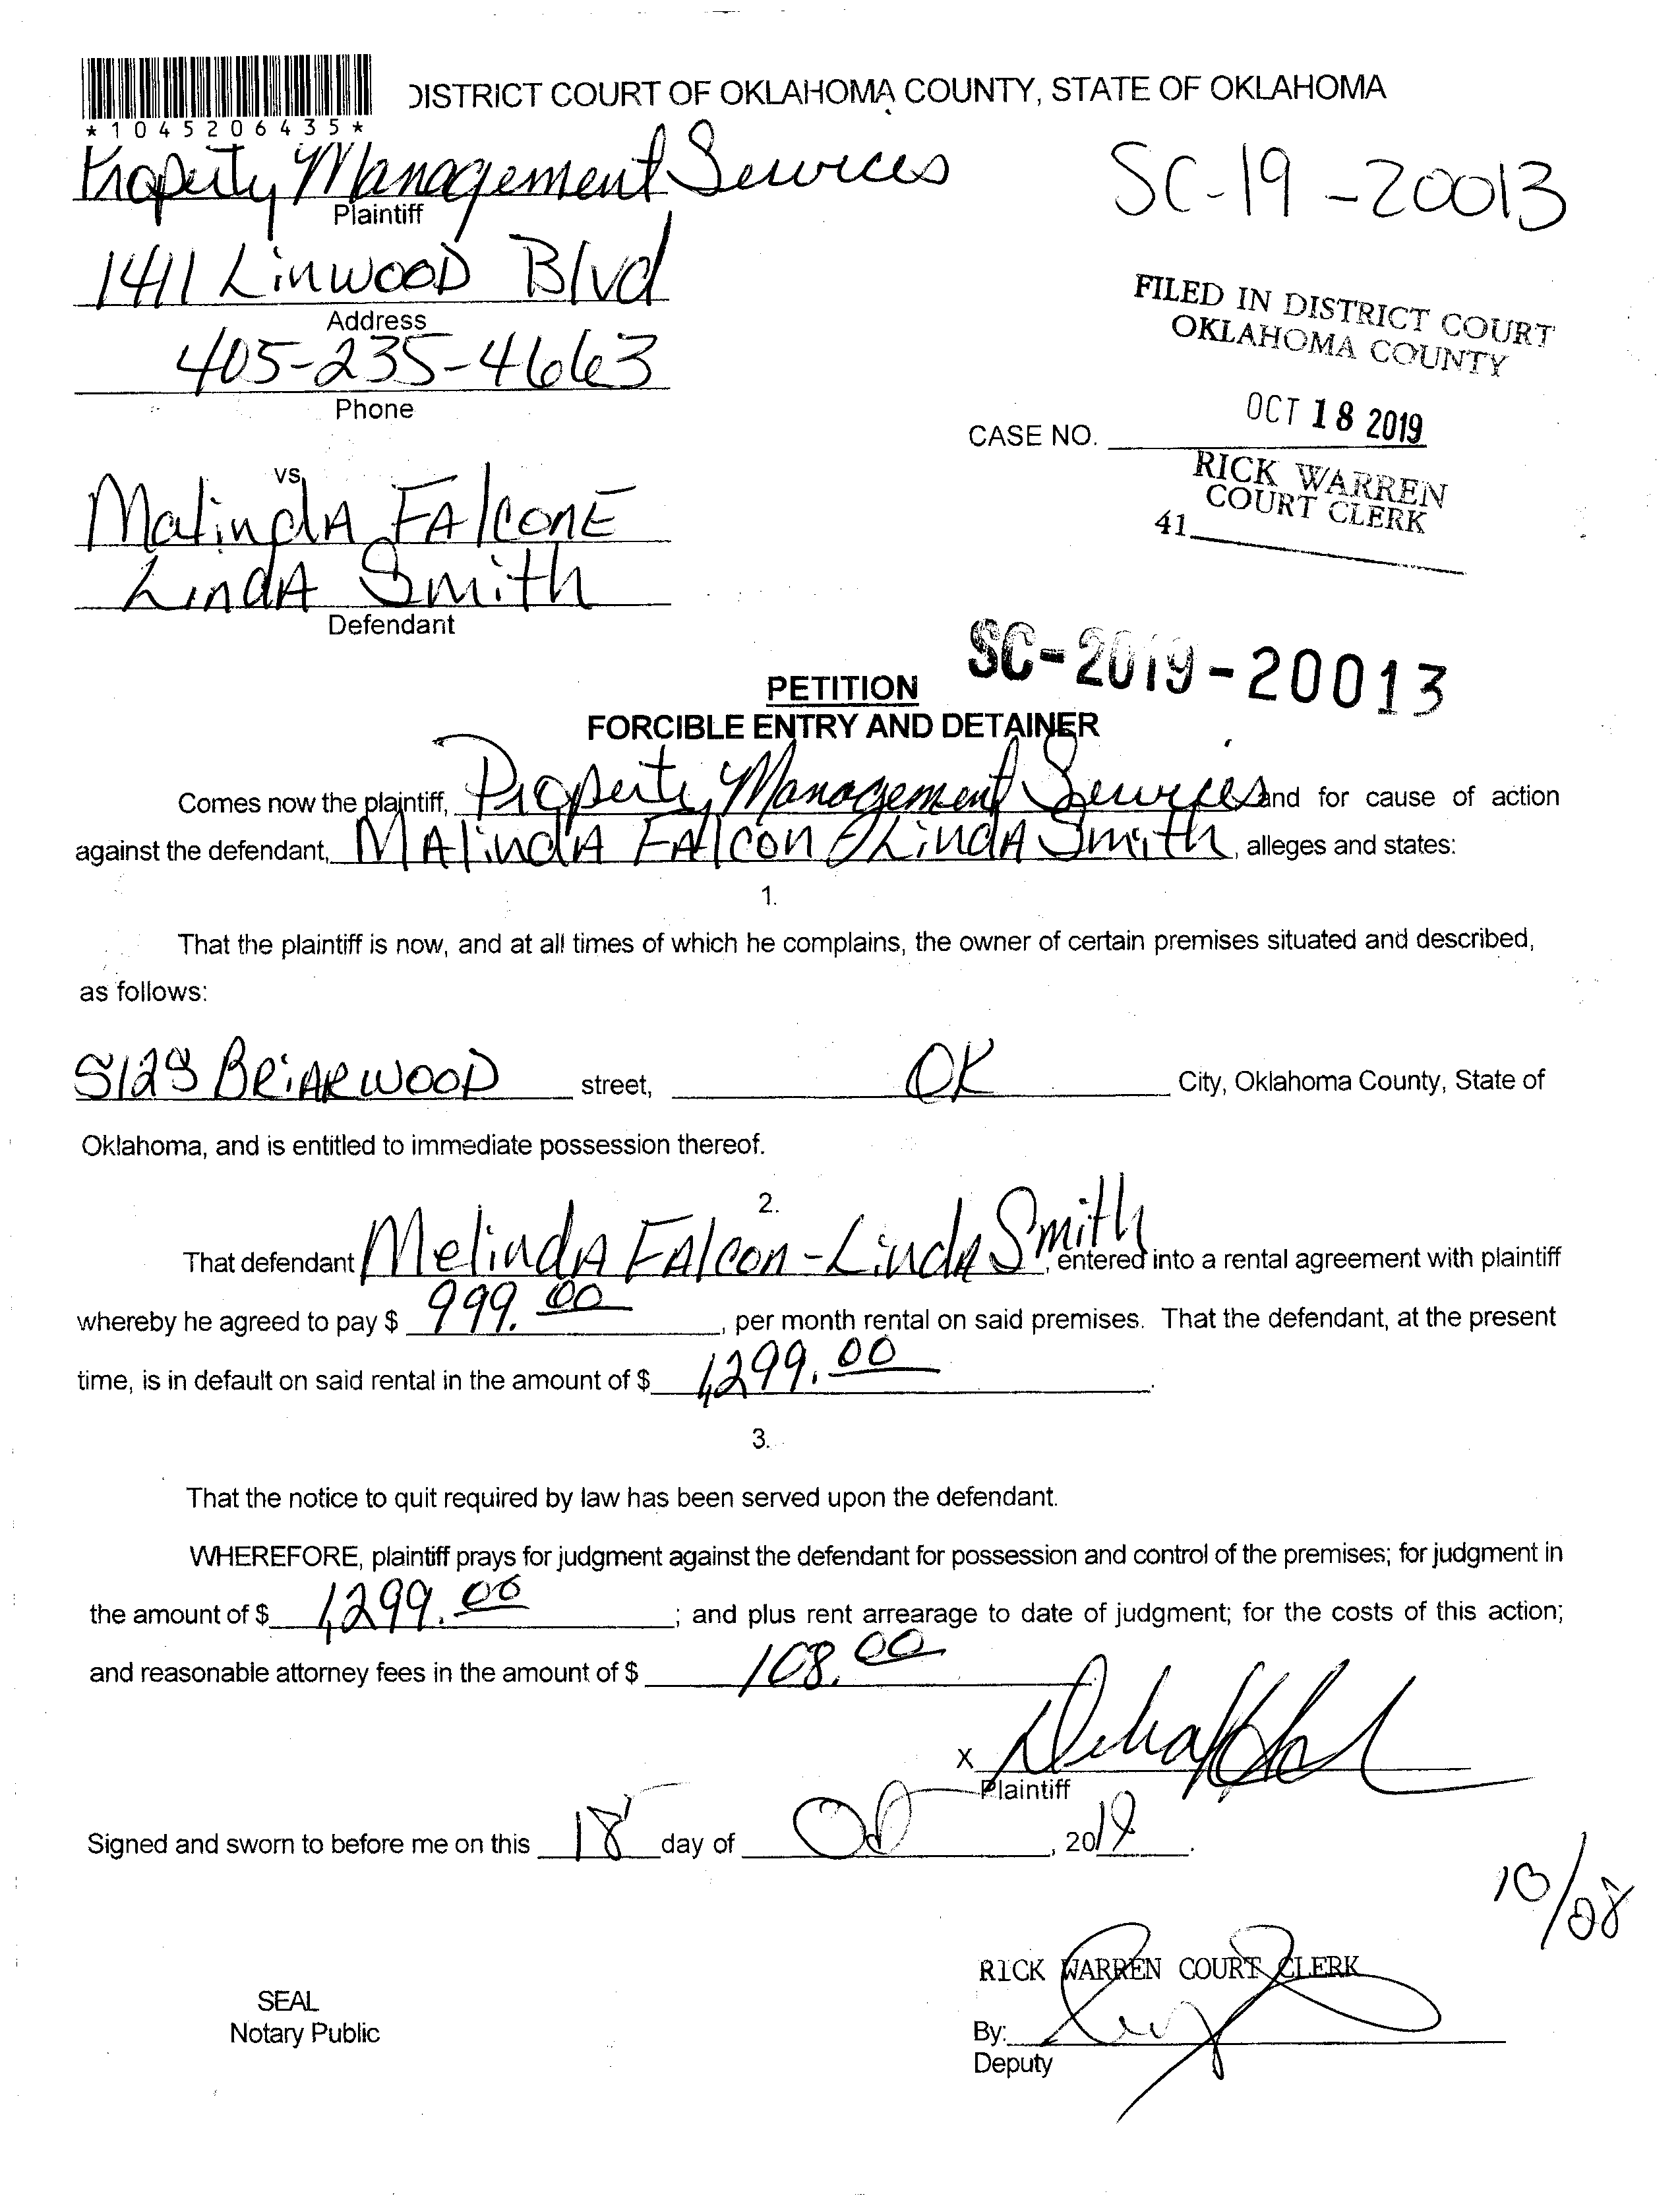 DISTRICT COURT OF OKLAHOMA COUNTY, STATE OF OKLAHOMA
*1045206435*
Property Management Services
Plaintiff
SC-19-20013
1411 Linwood Blvd
Address
405-235-4663
Phone
FILED IN DISTRICT COURT
OKLAHOMA COUNTY
OCT 18 2019
CASE NO.
RICK WARREN
COURT CLERK
41
vs.
Malinda FAlconE
LindA Smith
Defendant
SC-2019-20013
PETITION
FORCIBLE ENTRY AND DETAINER
Comes now the plaintiff, Property Management Services and for cause of action
against the defendant, MAlindA FAlcon & LindA Smith, alleges and states:
1.
That the plaintiff is now, and at all times of which he complains, the owner of certain premises situated and described,
as follows:
BRiARWOOD street, OK City, Oklahoma County, State of
Oklahoma, and is entitled to immediate possession thereof.
2.
That defendant MelindA FAlcon-LindA Smith, entered into a rental agreement with plaintiff
whereby he agreed to pay $ 999.00, per month rental on said premises. That the defendant, at the present
time, is in default on said rental in the amount of $ 1,299.00.
3.
That the notice to quit required by law has been served upon the defendant.
WHEREFORE, plaintiff prays for judgment against the defendant for possession and control of the premises; for judgment in
the amount of $ 1,299.00; and plus rent arrearage to date of judgment; for the costs of this action;
and reasonable attorney fees in the amount of $ 108.00
X
Plaintiff
Signed and sworn to before me on this 18 day of Oct, 2019.
10/28
RICK WARREN COURT CLERK
SEAL
Notary Public
By:
Deputy